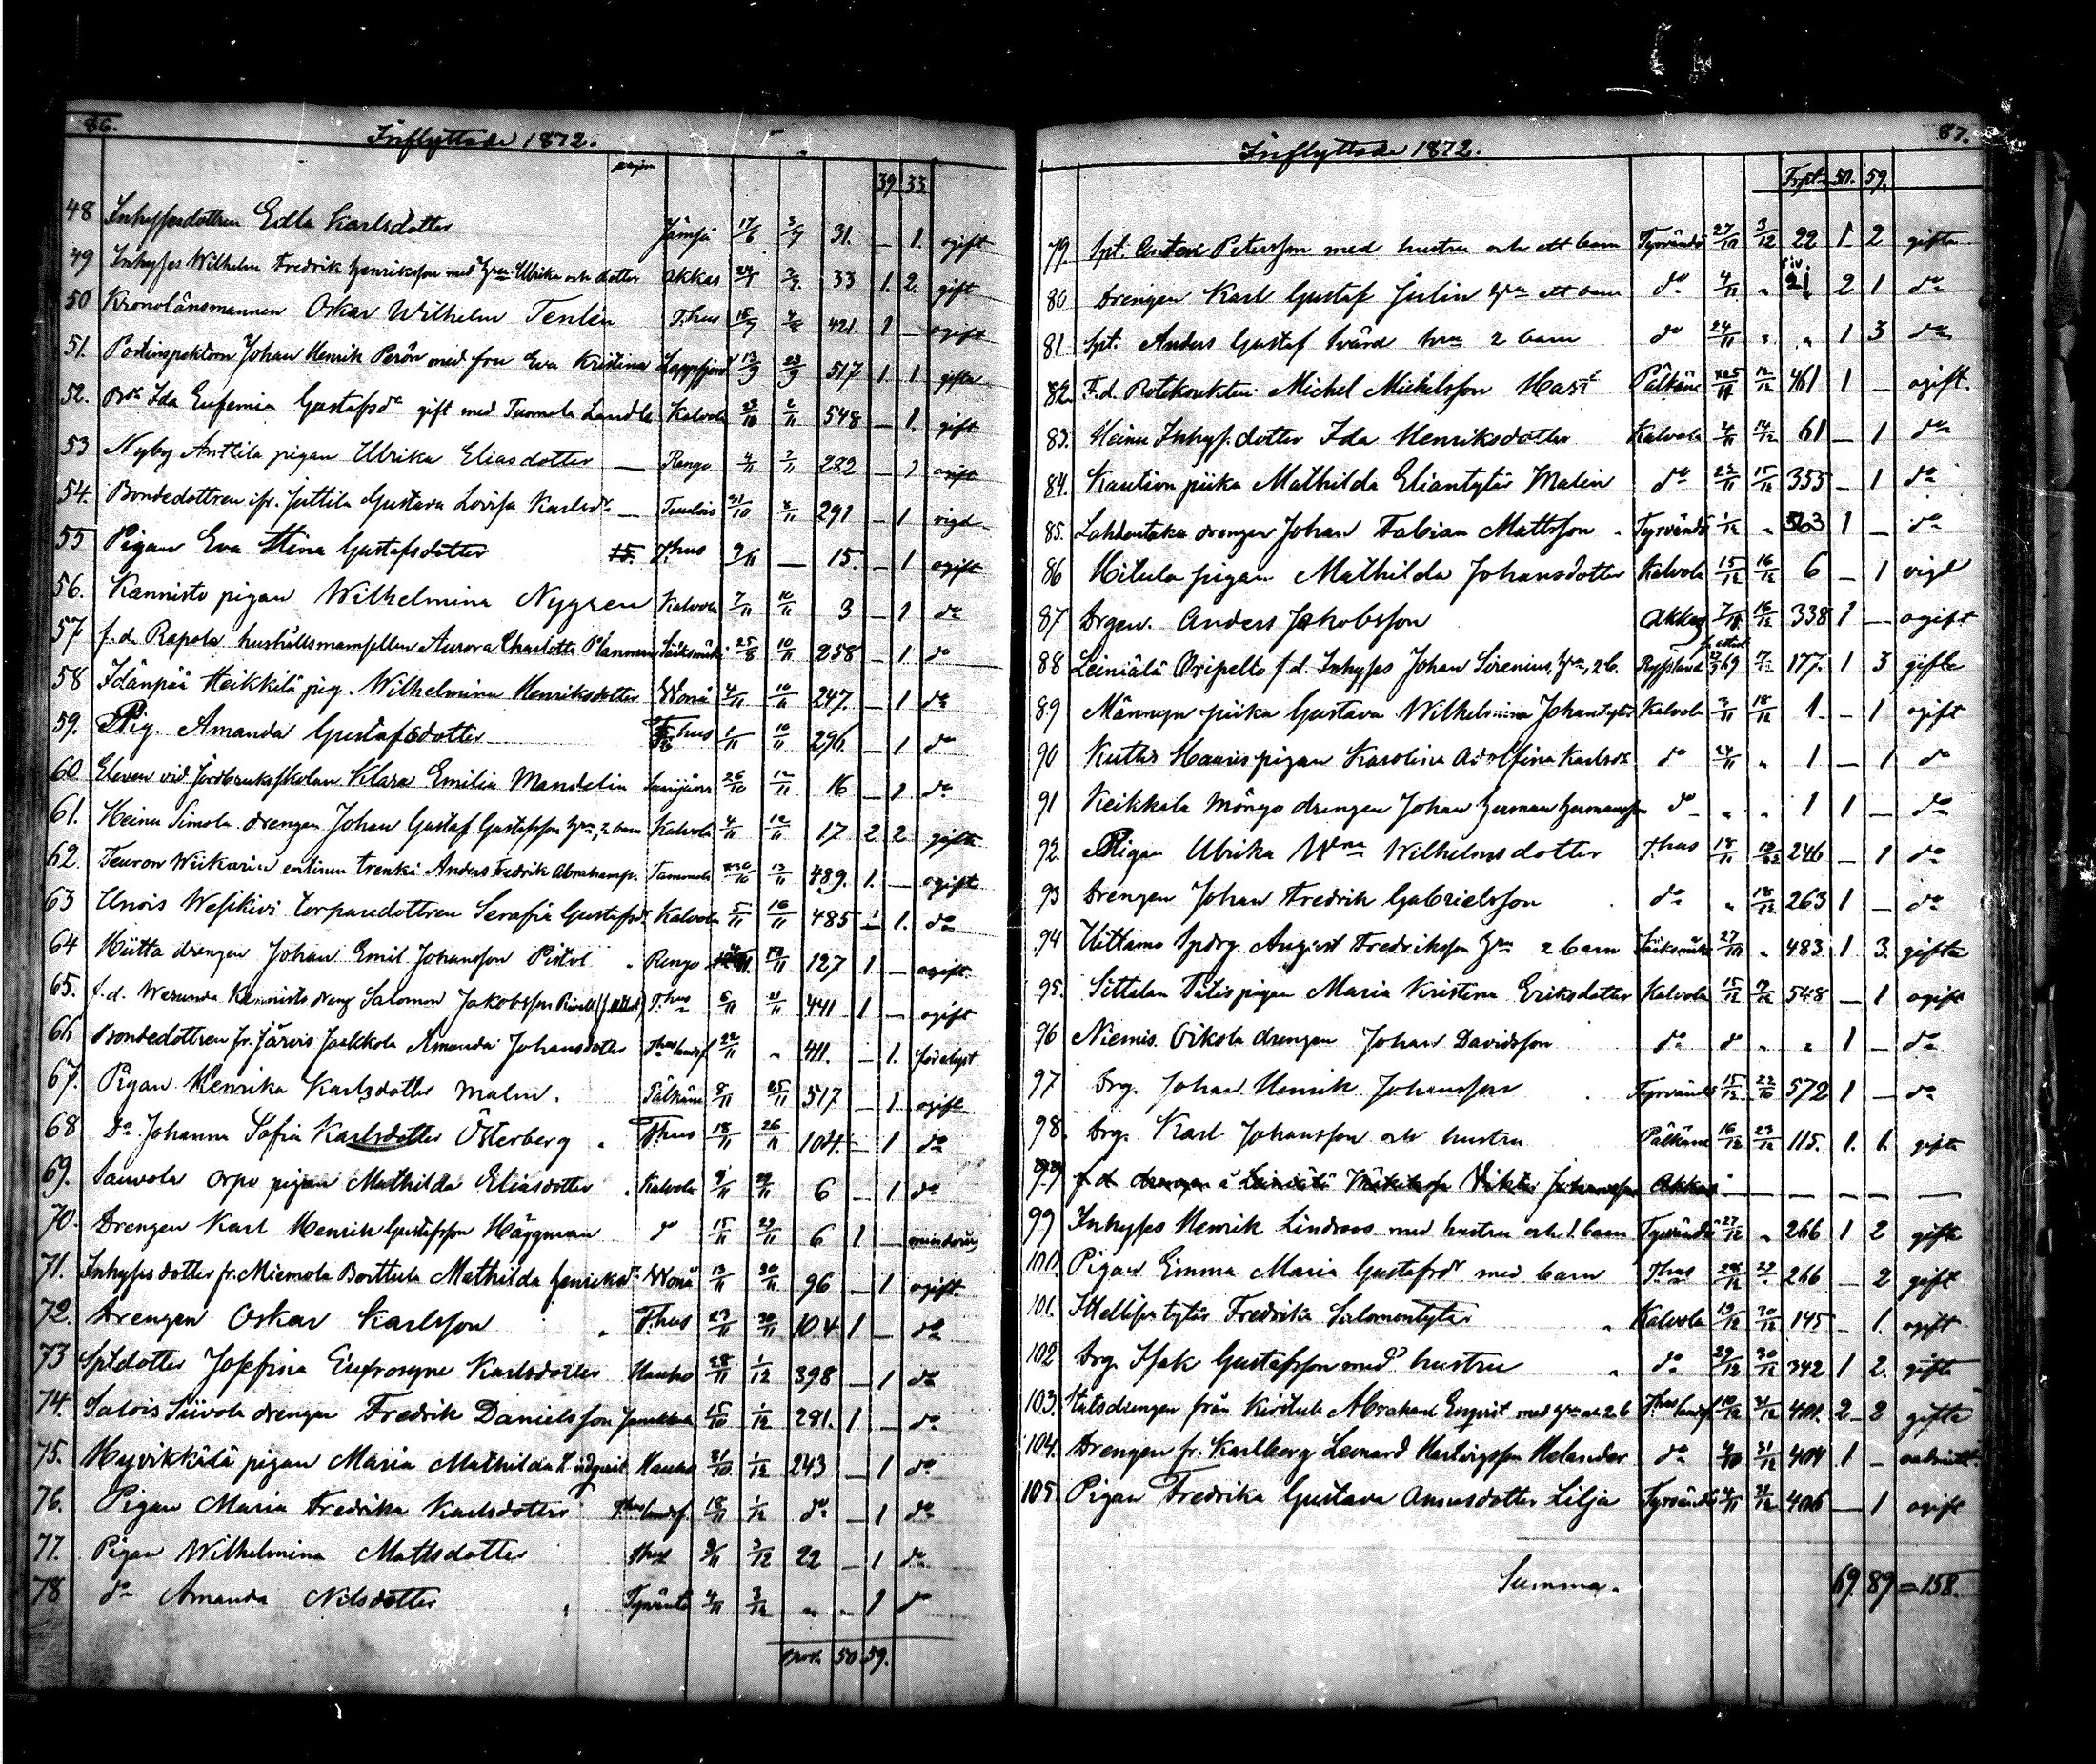 86.
Inflyttade 1872.
39 33
48 Inhysesdottren Edla Karlsdotter Jämsä 17/6 31. — 1. ogift
49 Inhyses Wilhelm Fredrik Henriksson med hru Ulrika och dotter Akkas 33 1. 2. gift
50 Kronolänsmannen Oskar Wilhelm Tenlén T:hus 421. 1 — ogift
51. Postinspektorn Johan Henrik Perön med fru Eva Kristina Lappfjärd 13/9 23/9 517 1. 1 gifta
52. Ida Eufemia Gustafsdr gift med Tuomola Kalvola 23/10 2/11 548 — 1. gift
53 Nyby Anttila pigan Ulrika Eliasdotter — Rengo 4/11 282 — 1 ogift
54. Bondedottren ifr. Juttila Gustava Lovisa Karlsdr — Tuulois 31/10 291 — 1 vigd
55 Pigan Eva Stina Gustafsdotter T:hus 2/11 — 15. — 1 ogift
56. Kannisto pigan Wilhelmina Nygren Kalvola 7/11 10/11 3 — 1 do
57 f.d. Rapola hushållsmamsellen Aurora Charlotta Sääksmäki 25/8 10/11 258 — 1. do
58 Idänpää Heikkilä pig. Wilhelmina Henriksdotter Wånå 4/11 10/11 247. — 1 do
59. Pig. Amanda Gustafsdotter T:hus 1/11 10/11 296. — 1 do
60 Eleven vid Jordbruksskolan Klara Emilia Mandelin 26/10 12/11 16 — 1. do
61. Heinu Simola drengen Johan Gustaf Gustafsson hru, 2 barn Kalvola 4/11 12/11 17 2 2 gifta
62 Teuron Wiikarin entinen trenki Anders Fredrik Abrahamss. Tammela 13/11 489. 1. — ogift
63 Unois Wesikivi Torparedottren Serafia Gustafsdr Kalvola 5/11 16/11 485 — 1. do
64 Hütta drengen Johan Emil Johansson Pistol Rengo 127 1 — ogift
65. f.d. Werunda Kannisto dreng Salomon Jakobsson T:hus 6/11 441 1 — ogift
66 Bondedottren fr. Järvis Jaakkola Amanda Johansdotter T:hus landsf. 22/11 „ 411. — 1. förelyst
67. Pigan Henrika Karlsdotter Malm. Pälkäne 8/11 25/11 517 — 1 ogift
68 Do Johanna Sofia Karlsdotter Österberg T:hus 18/11 26/11 104. — 1 do
69. Sauvola Orpo pigan Mathilda Eliasdotter Kalvola 9/11 6 — 1 do
70. Drengen Karl Henrik Gustafsson Häggman do 15/11 29/11 6 1 — minderårig
71. Inhyses dotter fr. Miemola Borttula Mathilda Henriksdr Wånå 13/11 30/11 96 — 1 ogift.
72. Drengen Oskar Karlsson T:hus 23/11 30/11 104 1 — do
73 Sptdotter Josefina Eufrosyne Karlsdotter Hauho 28/11 1/12 398 — 1 do
74. Salois Siivola drengen Fredrik Danielsson Janakkala 15/10 1/12 281. 1 — do
75. Hyvikkälä pigan Maria Mathilda Hauho 31/10 1/12 243 — 1 do
76. Pigan Maria Fredrika Karlsdotter T:hus landsf. 18/11 1/12 do — 1 do
77. Pigan Wilhelmina Mattsdotter T:hus 3/12 22 — 1 do
78 do Amanda Nilsdotter Tyrväntö 4/11 3/12 „ „ 1 do
50 59.
87.
Inflyttade 1872.
Trpt 50. 59.
79. Spt. Gustav Petersson med hustru och ett barn Tyrväntö 27/10 3/12 22 1 2 gifta
80 Drengen Karl Gustaf Julin hru ett barn do 4/11 „ 21 2 1 do
81 Spt. Anders Gustaf Svärd hru 2 barn do 24/11 „ „ 1 3 do
82. F.d. Michel Michelsson Pälkäne 12/12 461 1 — ogift.
83. Heinu Inhys. dotter Ida Henriksdotter Kalvola 4/11 14/12 61 — 1 do
84. Kaution piika Mathilda Eliantytär Malin do 23/11 15/12 355 — 1 do
85. Lahdentaka drengen Johan Fabian Mattsson Tyrväntö 1/12 „ 563 1 — do
86 Hitula pigan Mathilda Johansdotter Kalvola 15/12 16/12 6 — 1 vigd
87 Drgen. Anders Jakobsson Akkas 16/12 338 1 — ogift
88 Leiniälä Oripelto f.d. Inhyses Johan Sirenius, hru, 2 b. Ryssland 177. 1 3 gifta
89 Männyn piika Gustava Wilhelmina Johantytär Kalvola 18/12 1 — 1 ogift
90 Kutis Hauris pigan Karolina Adolfina Karlsdr do 24/11 „ 1 — 1 do
91 Keikkala Möngö drengen Johan Herman Hermansson do „ „ 1 1 — do
92. Pigan Ulrika Wna Wilhelmsdotter T:hus 18/11 246 — 1 do
93 Drengen Johan Fredrik Gabrielsson do „ 18/12 263 1 — do
94 Uittamo Spdrg. August Fredriksson hru 2 barn Sääksmäki 27/10 „ 483 1 3. gifta
95. Sittalan Tätis pigan Maria Kristina Eriksdotter Kalvola 15/12 548 — 1 ogift
96 Niemis Oikola drengen Johan Davidsson do do „ „ 1 — do
97 Drg. Johan Henrik Johansson Tyrväntö 15/12 572 1 — do
98. Drg. Karl Johansson och hustru Pälkäne 16/12 23/12 115. 1. 1. gifta
f.d. drengen i Leiniälä Viktor Johansson Akkas — — — — —
99 Inhyses Henrik Lindroos med hustru och 1 barn Tyrväntö 27/12 „ 266 1 2 gifta
100. Pigan Emma Maria Gustafsdr med barn T:hus 266 — 2 gift
101. Itsellisen tytär Fredrika Salomontytär Kalvola 19/12 30/12 145 — 1. ogift
102 Drg. Isak Gustafsson med hustru do 29/12 30/12 342 1 2. gifta
103. Statsdrengen från Kirstula Abraham Enqvist med hru och 2 b T:hus landsf. 31/12 401. 2 2 gifta
104. Drengen fr. Karlberg Leonard Hartvigsson Helander do 31/12 404 1 —
105 Pigan Fredrika Gustava Ananiasdotter Lilja Tyrväntö 4/11 31/12 406 — 1 ogift
Summa. 69. 89 = 158.